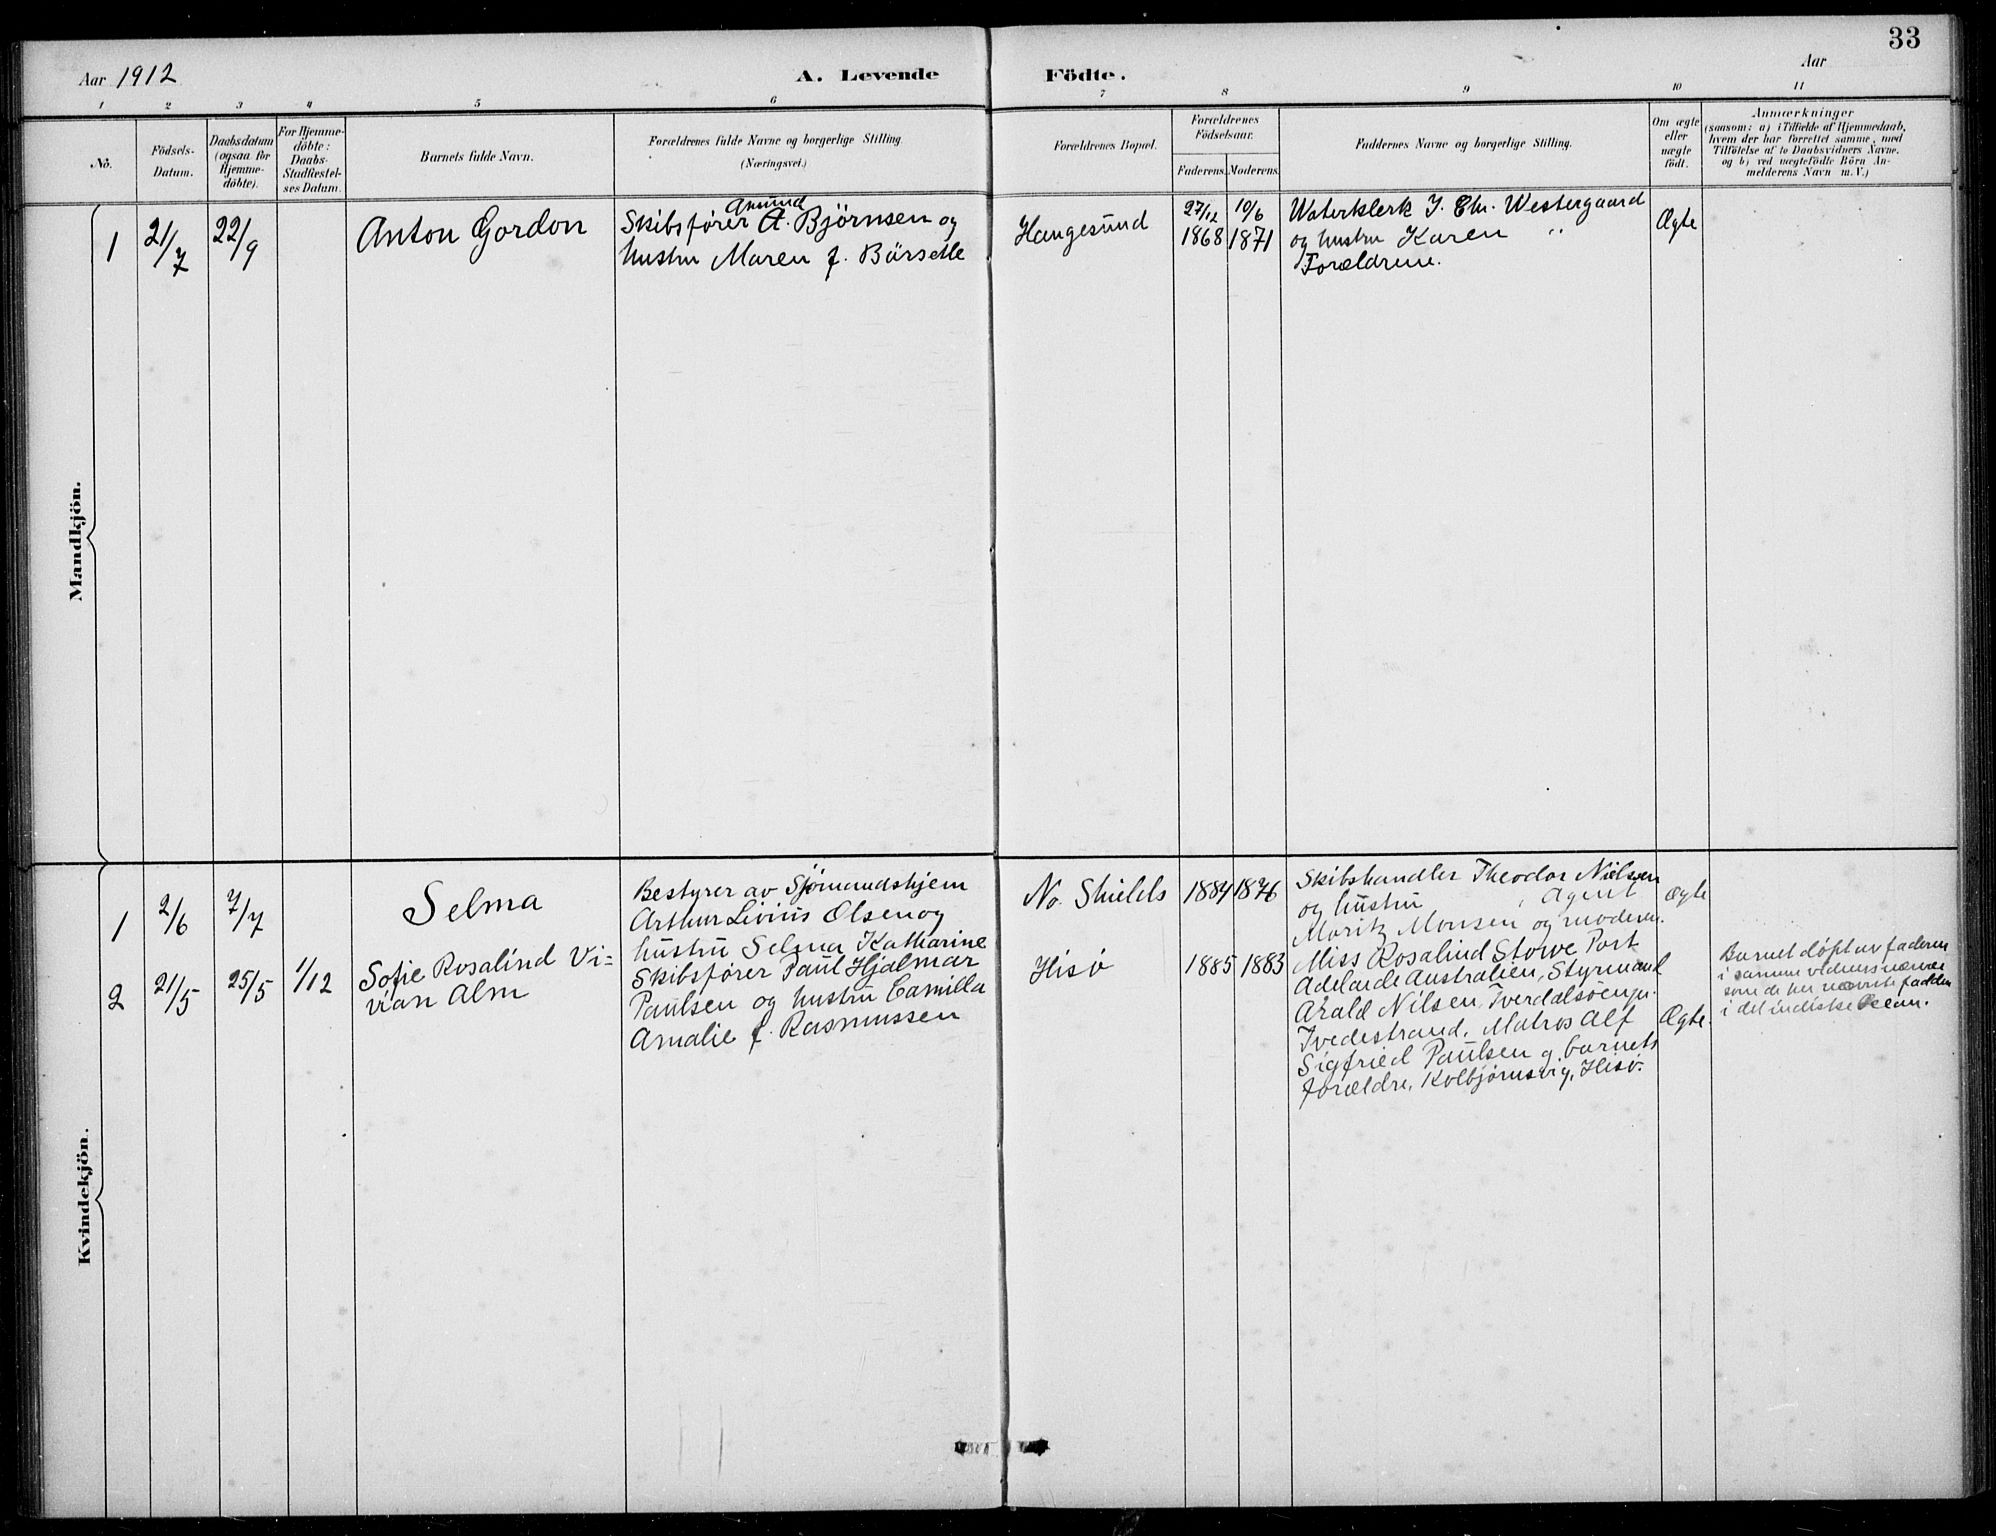 33
Aar 1912
A. Levende
Födte.
Aar
1 2 3 4 5 6 7 8 9 10 11
No.
Födsels-
Datum.
Daabsdatum
(ogsaa for
Hjemme-
döbte).
For Hjemme-
döbte:
Daabs-
Stadfæstel-
ses Datum.
Barnets fulde Navn.
Forældrenes fulde Navne og borgerlige Stilling
(Næringsvei.)
Forældrenes Bopæl.
Forældrenes
Födselsaar.
Faderens. Moderens.
Faddernes Navne og borgerlige Stilling.
Om ægte
eller
uægte
födt.
Anmærkninger
(saasom: a) i Tilfælde af Hjemmedaab,
hvem der har forrettet samme, med
Tilföielse af to Daabsvidners Navne.
og b) ved uægtefödte Börn An-
melderens Navn m. V.)
Mandkjön.
1
21/7
22/9
Anton Gordon
Skibsfører A. Bjørnsen og
hustru Maren f. Bårsetle
Haugesund
27/12
1868
10/6
1871
Waterklerk J. Chr. Westergaard
og hustru Karen "
Forældrene.
Ægte
Kvindekjön.
1
2/6
7/7
Selma
Bestyrer av Sjömandshjem
Arthur Livius Olsen og
hustru Selma Katharine
No. Shields
1884
1876
Skibshandler Theodor Nielsen
og hustru , Agent
Moritz Monsen og moderen.
Ægte
2
21/5
25/5
1/12
Sofie Rosalind Vi=
vian Alm
Skibsfører Paul Hjalmar
Paulsen og hustru Camilla
Amalie f. Rasmussen
Hisø
1885
1883
Miss Rosalind Stowe Port
Adelaide Australien, Styrmand
Arald Nilsen, Tverdalsöen pr.
Tvedestrand, Matros Alf
Sigfried Paulsen g. barnets
forældre, Kolbjørnsvig, Hisø.
Ægte.
Barnet døpt av faderen
i samme vidners nærvær
som de her nævnte faddere
i det indiske Ocean.